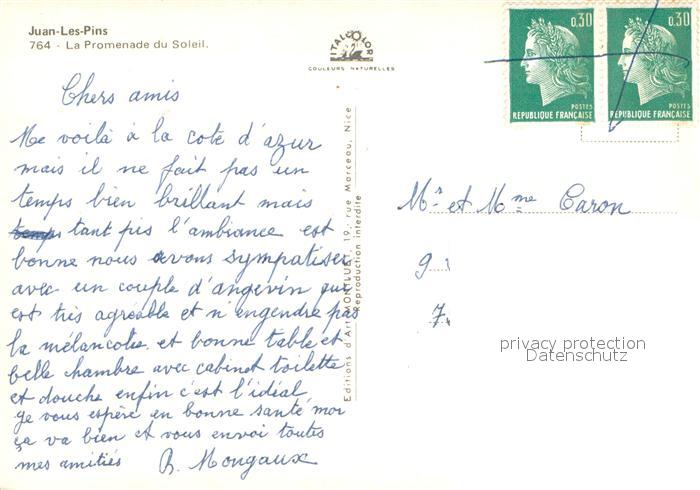 Juan-Les-Pins
764 - La Promenade du Soleil.
ITALCOLOR
COULEURS NATURELLES
0,30
POSTES
REPUBLIQUE FRANÇAISE
0,30
POSTES
REPUBLIQUE FRANÇAISE
Chers amis
Me voilà à la cote d'azur
mais il ne fait pas un
temps bien brillant mais
temps tant pis l'ambiance est
bonne nous avons sympatiser
avec un couple d'angevin qui
est très agréable et n'engendre pas
la mélancolie. et bonne table et
belle chambre avec cabinet toilette
et douche enfin c'est l'idéal
je vous espère en bonne santé moi
ça va bien et vous envoi toutes
mes amitiés R. Mongaux
Editions d'Art MONTLUET, 19, rue Marceau, Nice
Reproduction interdite
Mr et Mme Caron
9
7
privacy protection
Datenschutz